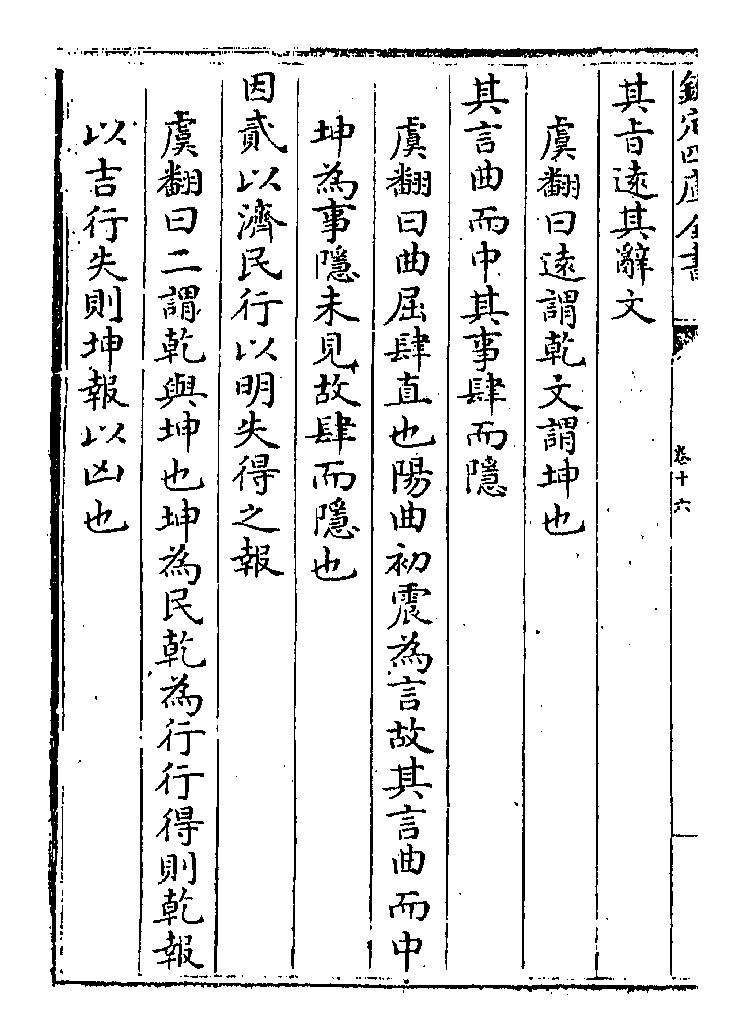 欽定四庫全書
卷十六
其㫖遠其辭文
虞翻曰遠謂乾文謂坤也
其言曲而中其事肆而隱
虞翻曰曲屈肆直也陽曲初震為言故其言曲而中
坤為事隱未見故肆而隱也
因貳以濟民行以明失得之報
虞翻曰二謂乾與坤也坤為民乾為行行得則乾報
以吉行失則坤報以凶也